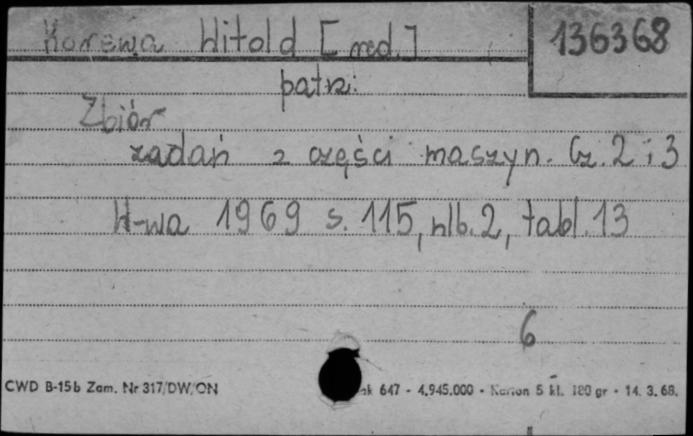 Korewa Witold [red.] 136368
patrz:
Zbiór
zadań z części maszyn. Cz. 2 i 3
W-wa 1969 s. 115, nlb. 2, tabl. 13
6
CWD B-15b Zam. Nr 317/DW/ON 647 - 4.945.000 - Karton 5 kl. 180 gr - 14. 3. 68.